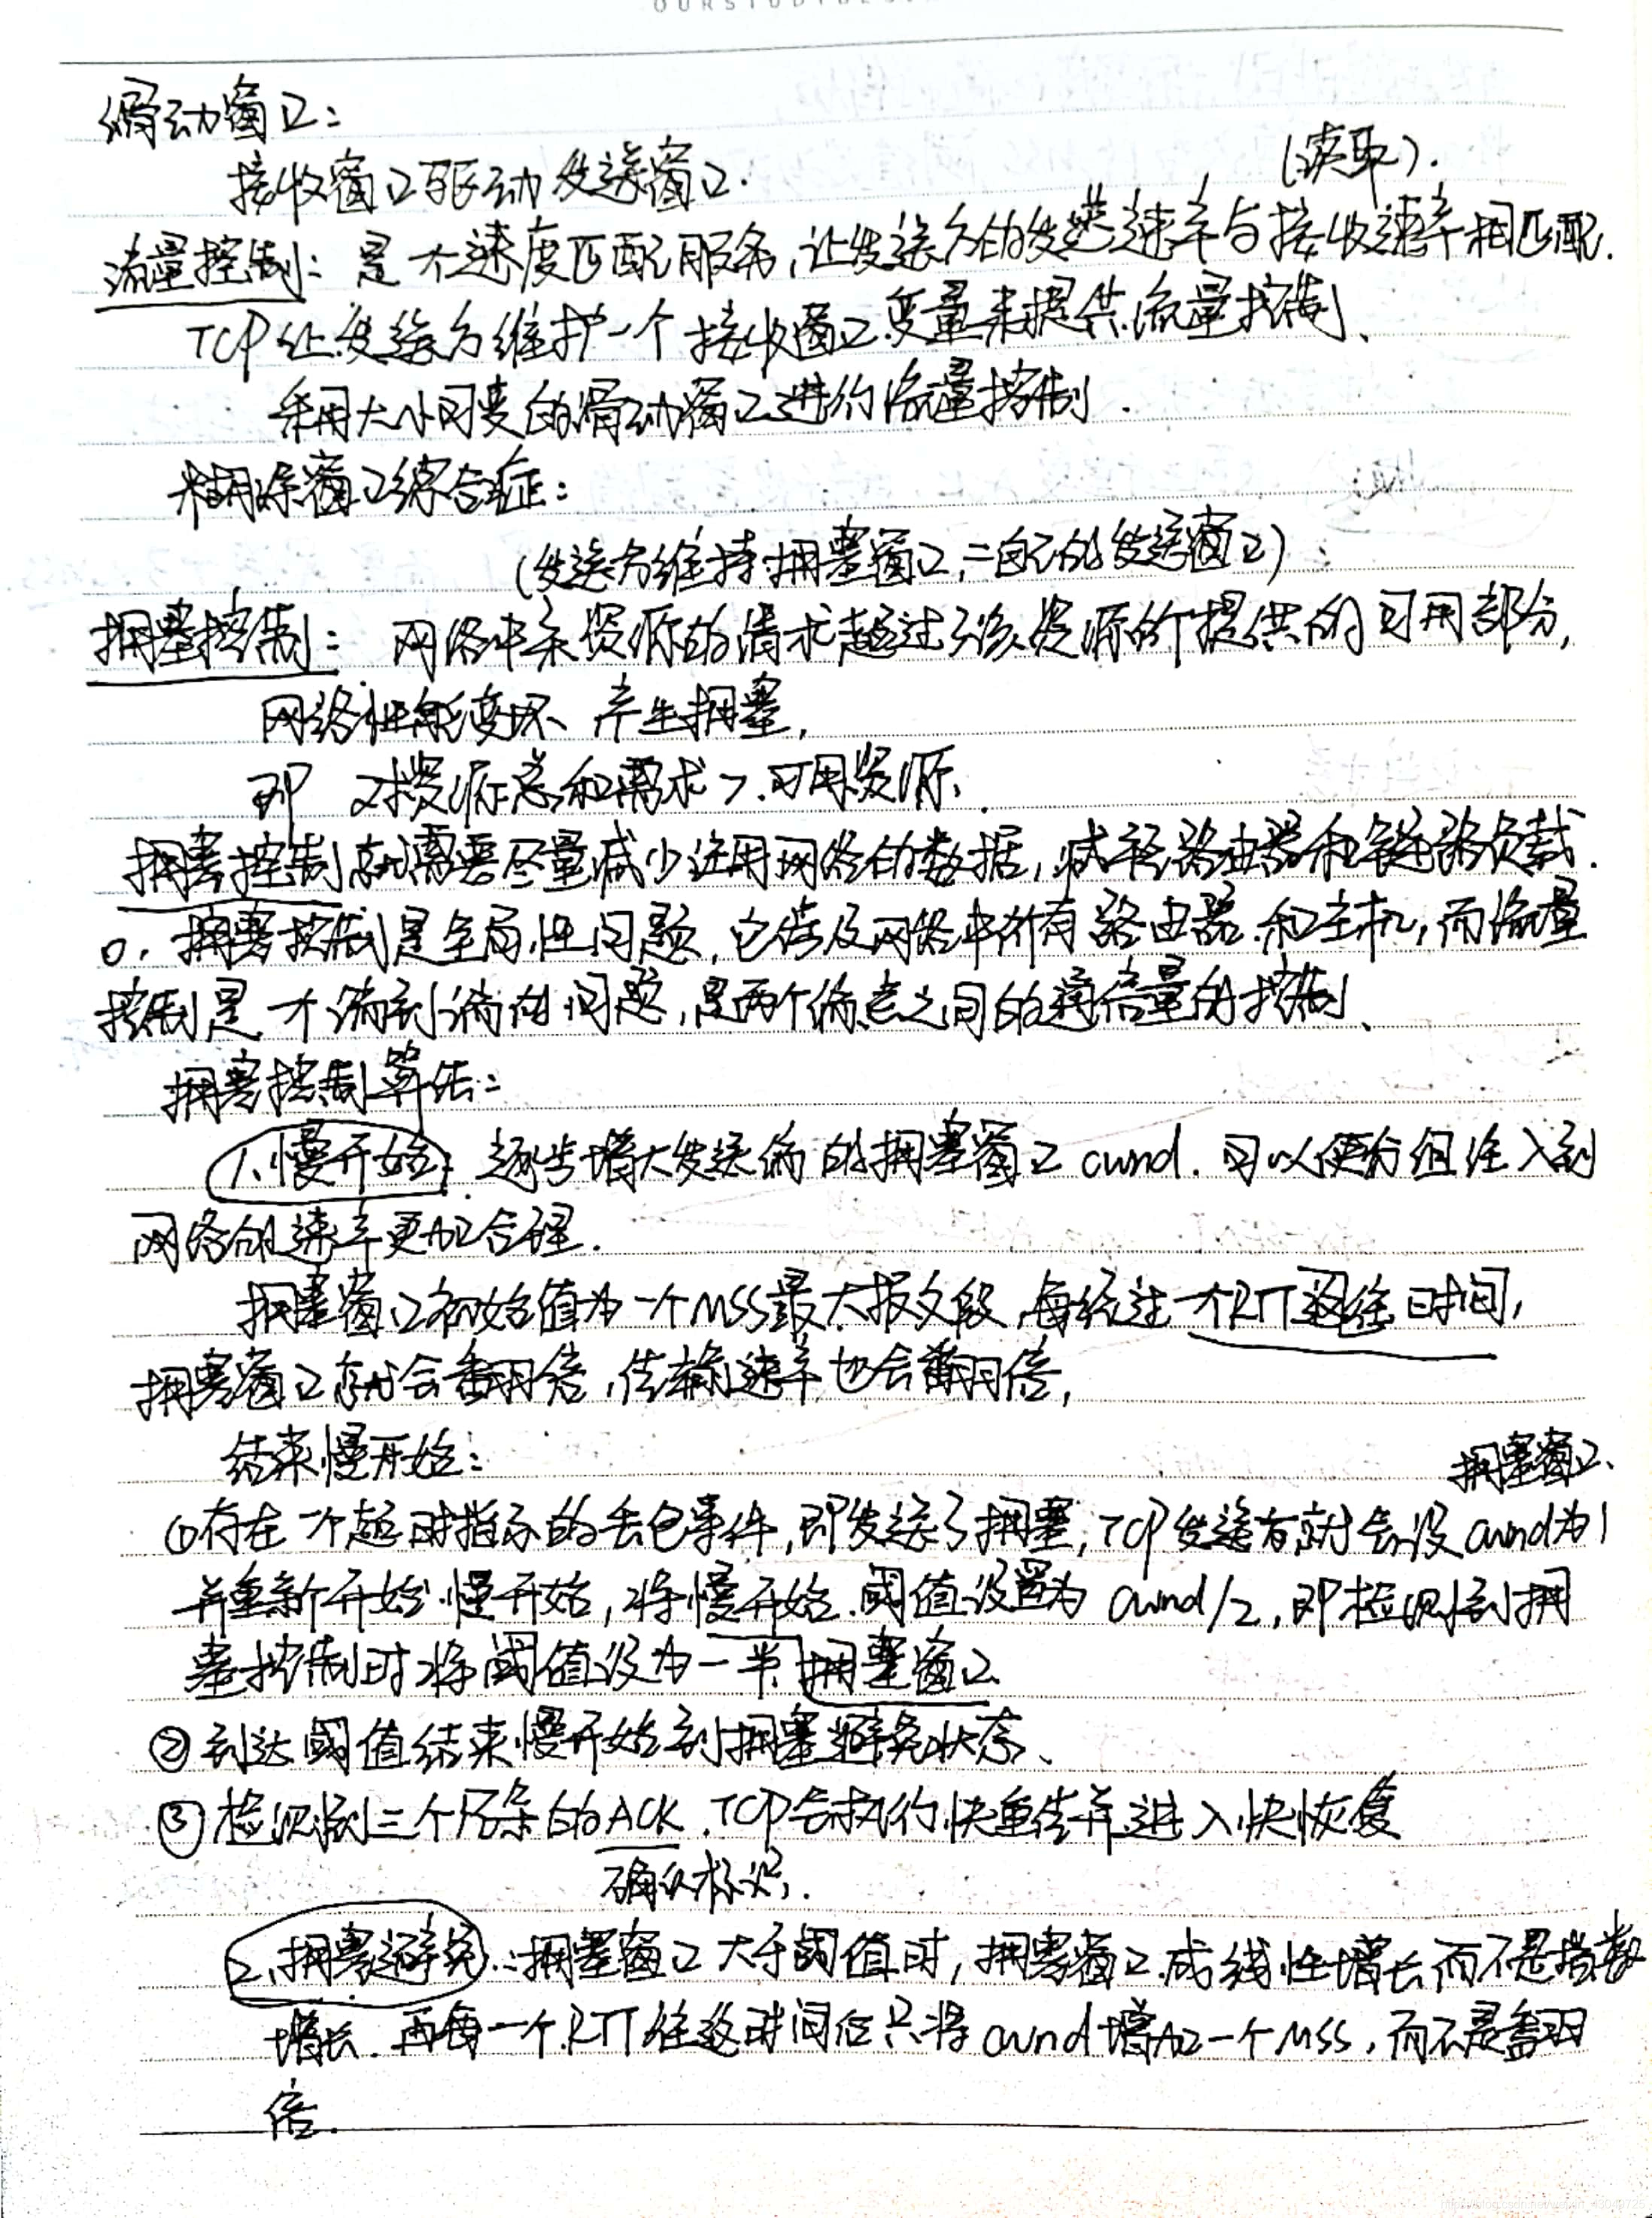 滑动窗口:
接收窗口驱动发送窗口.
(读取).
流量控制: 是个速度匹配服务,让发送方的发送速率与接收速率相匹配.
TCP让发送方维护一个接收窗口变量来提供流量控制、
采用大小可变的滑动窗口进行流量控制.
糊涂窗口综合症:
(发送方维持拥塞窗口,=自己的发送窗口)
拥塞控制: 网络中某资源的请求超过了该资源所提供的可用部分,
网络性能变坏、产生拥塞,
即 对资源总和需求>可用资源、
拥塞控制就需要尽量减少注用网络的数据,减轻路由器和链路负载.
拥塞控制是全局性问题,它涉及网络中所有路由器和主机,而流量
控制是个端到端的问题,是两个端点之间的通信量的控制、
拥塞控制算法:
1、慢开始: 逐步增大发送端的拥塞窗口cwnd.可以使分组注入到
网络的速率更加合理.
拥塞窗口初始值为一个MSS最大报文段,每经过一个RTT返往时间,
拥塞窗口就会翻倍,传输速率也会翻倍,
结束慢开始:
拥塞窗口、
①存在一个超时指示的丢包事件,即发送了拥塞,TCP发送方就会设cwnd为1
并重新开始慢开始,将慢开始阈值设置为cwnd/2,即检测到拥
塞控制时将阈值设为一半拥塞窗口
②到达阈值结束慢开始到拥塞避免状态、
③检测到三个冗余的ACK,TCP会执行快重传并进入快恢复
确认标识.
2、拥塞避免:拥塞窗口大于阈值时,拥塞窗口成线性增长而不是指数
增长.再每一个RTT往返时间后只将cwnd增加一个MSS,而不是翻
倍.